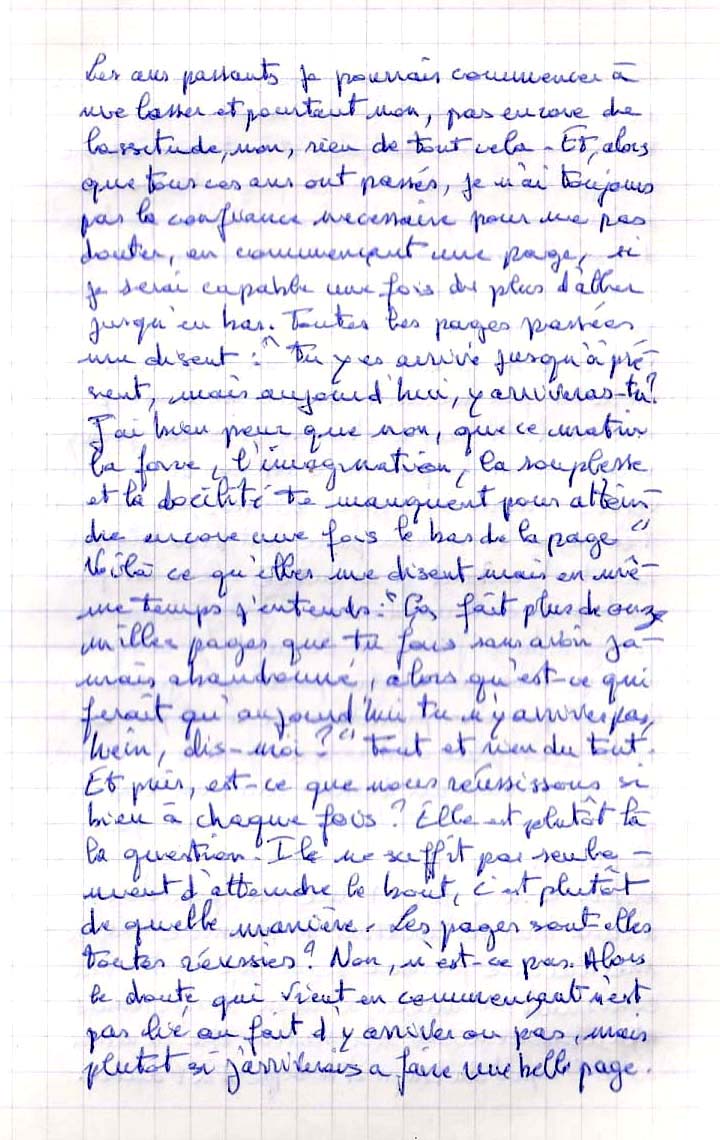 Les ans passants je pourrais commencer à
me lasser et pourtant non, pas encore de
lassitude, non, rien de tout cela. Et, alors
que tous ces ans ont passés, je n'ai toujours
pas la confiance nécessaire pour ne pas
douter, en commençant une page, si
je serai capable une fois de plus d'aller
jusqu'en bas. Toutes les pages passées
me disent : "Tu y es arrivé jusqu'à pré-
sent, mais aujourd'hui, y arriveras-tu?
J'ai bien peur que non, que ce matin
la force, l'imagination, la souplesse
et la docilité te manquent pour attein-
dre encore une fois le bas de la page"
Voilà ce qu'elles me disent mais en mê-
me temps j'entends : "Ça fait plus de onze
milles pages que tu fais sans avoir ja-
mais abandonné, alors qu'est-ce qui
ferait qu'aujourd'hui tu n'y arrives pas,
hein, dis-moi?" tout et rien du tout.
Et puis, est-ce que nous réussissons si
bien à chaque fois? Elle est plutôt là
la question. Il ne suffit pas seule-
ment d'atteindre le bout, c'est plutôt
de quelle manière. Les pages sont-elles
toutes réussies? Non, n'est-ce pas. Alors
le doute qui vient en commençant n'est
pas lié au fait d'y arriver ou pas, mais
plutôt si j'arriverais a faire une belle page.